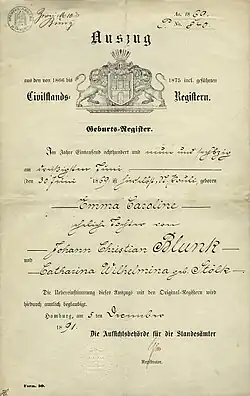 An. 1869.
No. 540
Auszug
aus den von 1866 bis
1875 incl. geführten
Civilstands-
Registern.
Geburts-Register.
Im Jahre Eintausend achthundert und neun und sechzig
am dreißigsten Juni
(den 30 Juni 1869) geboren
Emma Caroline
eheliche Tochter von
Johann Christian Blunk
und
Catharina Wilhelmina geb. Stölk
Die Uebereinstimmung dieses Auszugs mit den Original-Registern wird
hiedurch amtlich beglaubigt.
Hamburg, am 5 ten December
1891.
Die Aufsichtsbehörde für die Standesämter
Registrator.
Form. 30.